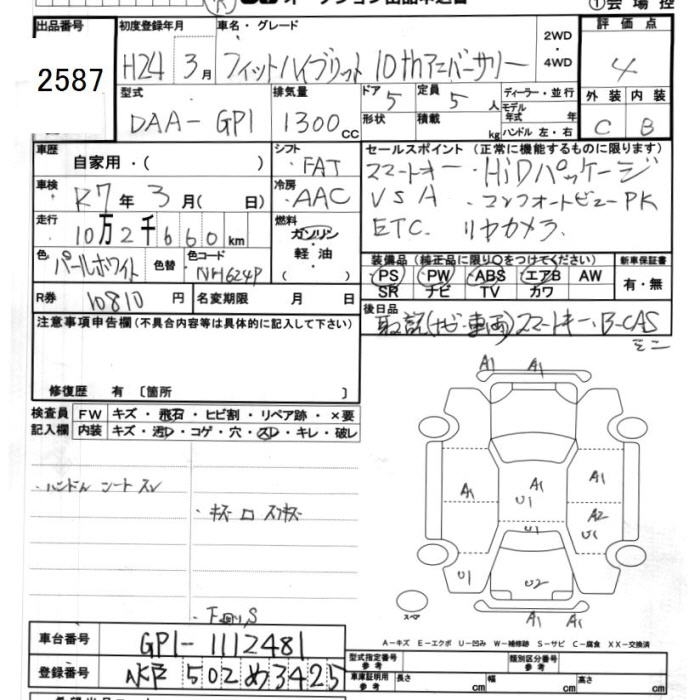 オークション出品申込書 ①会場控
出品番号 初度登録年月 車名・グレード 評価点
2587 H24 3月 フィットハイブリット 10thアニバーサリー 2WD・4WD 4
型式 排気量 ドア 5 定員 5人 ディーラー・並行 外装 内装
DAA-GP1 1300cc 形状 積載 kg モデル年式 年 C B
ハンドル 左・右
車歴 自家用・( ) シフト FAT セールスポイント (正常に機能するものに限ります)
車検 R7年 3月( 日) 冷房 AAC スマートキー・HiDパッケージ
走行 10万2千660km 燃料 ガソリン・軽油 ( ) VSA ・コンフォートビューPK
ETC. リヤカメラ
色 パールホワイト 色替 色コード NH624P 装備品 (純正品に限り○をつけてください) 新車保証書
PS PW ABS エアB AW 有・無
SR ナビ TV カワ
R券 10810円 名変期限 月 日 後日品
取説(ナビ・車両)スマートキー・B-CAS
ミニ
注意事項申告欄(不具合内容等は具体的に記入して下さい)
修復歴 有〔箇所 〕
検査員記入欄 FW キズ・飛石・ヒビ割・リペア跡・×要
内装 キズ・汚レ・コゲ・穴・スレ・キレ・破レ
・ハンドル シート スレ
・キズ
・下廻りS
A1 A1
A1 A1 A1
U1 A2
U1
U1 U2
A1 A1
スペア
A-キズ E-エクボ U-凹み W-補修跡 S-サビ C-腐食 XX-交換済
車台番号 GP1-1112481
登録番号 水戸 502 め 3425
型式指定番号 参考 類別区分番号 参考
車庫証明用 参考 長さ cm 幅 cm 高さ cm